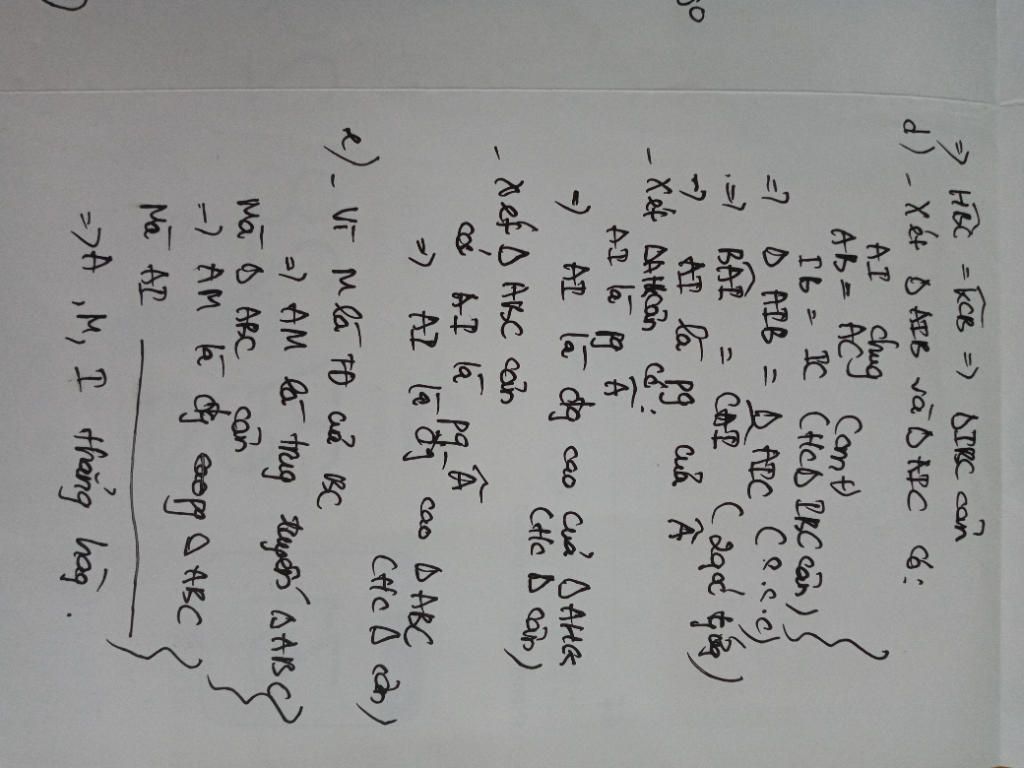 ⇒ HBC = KCB ⇒ Δ IBC cân
d) - Xét Δ AIB và Δ AIC có:
AI chug
AB = AC (cmt)
IB = IC (t/c Δ IBC cân)
⇒ Δ AIB = Δ AIC (c.c.c)
⇒ BAI = CAI (2 góc tg ứng)
⇒ AI là pg của Â
- Xét Δ AHK cân có:
AI là pg Â
⇒ AI là đg cao của Δ AHK
(t/c Δ cân)
- Xét Δ ABC cân
có AI là pg Â
⇒ AI là đg cao Δ ABC
(t/c Δ cân)
e) - Vì M là TĐ của BC
⇒ AM là trug tuyến Δ ABC
Mà Δ ABC cân
⇒ AM là đg pg Δ ABC
Mà AI
⇒ A, M, I thẳng hàng.